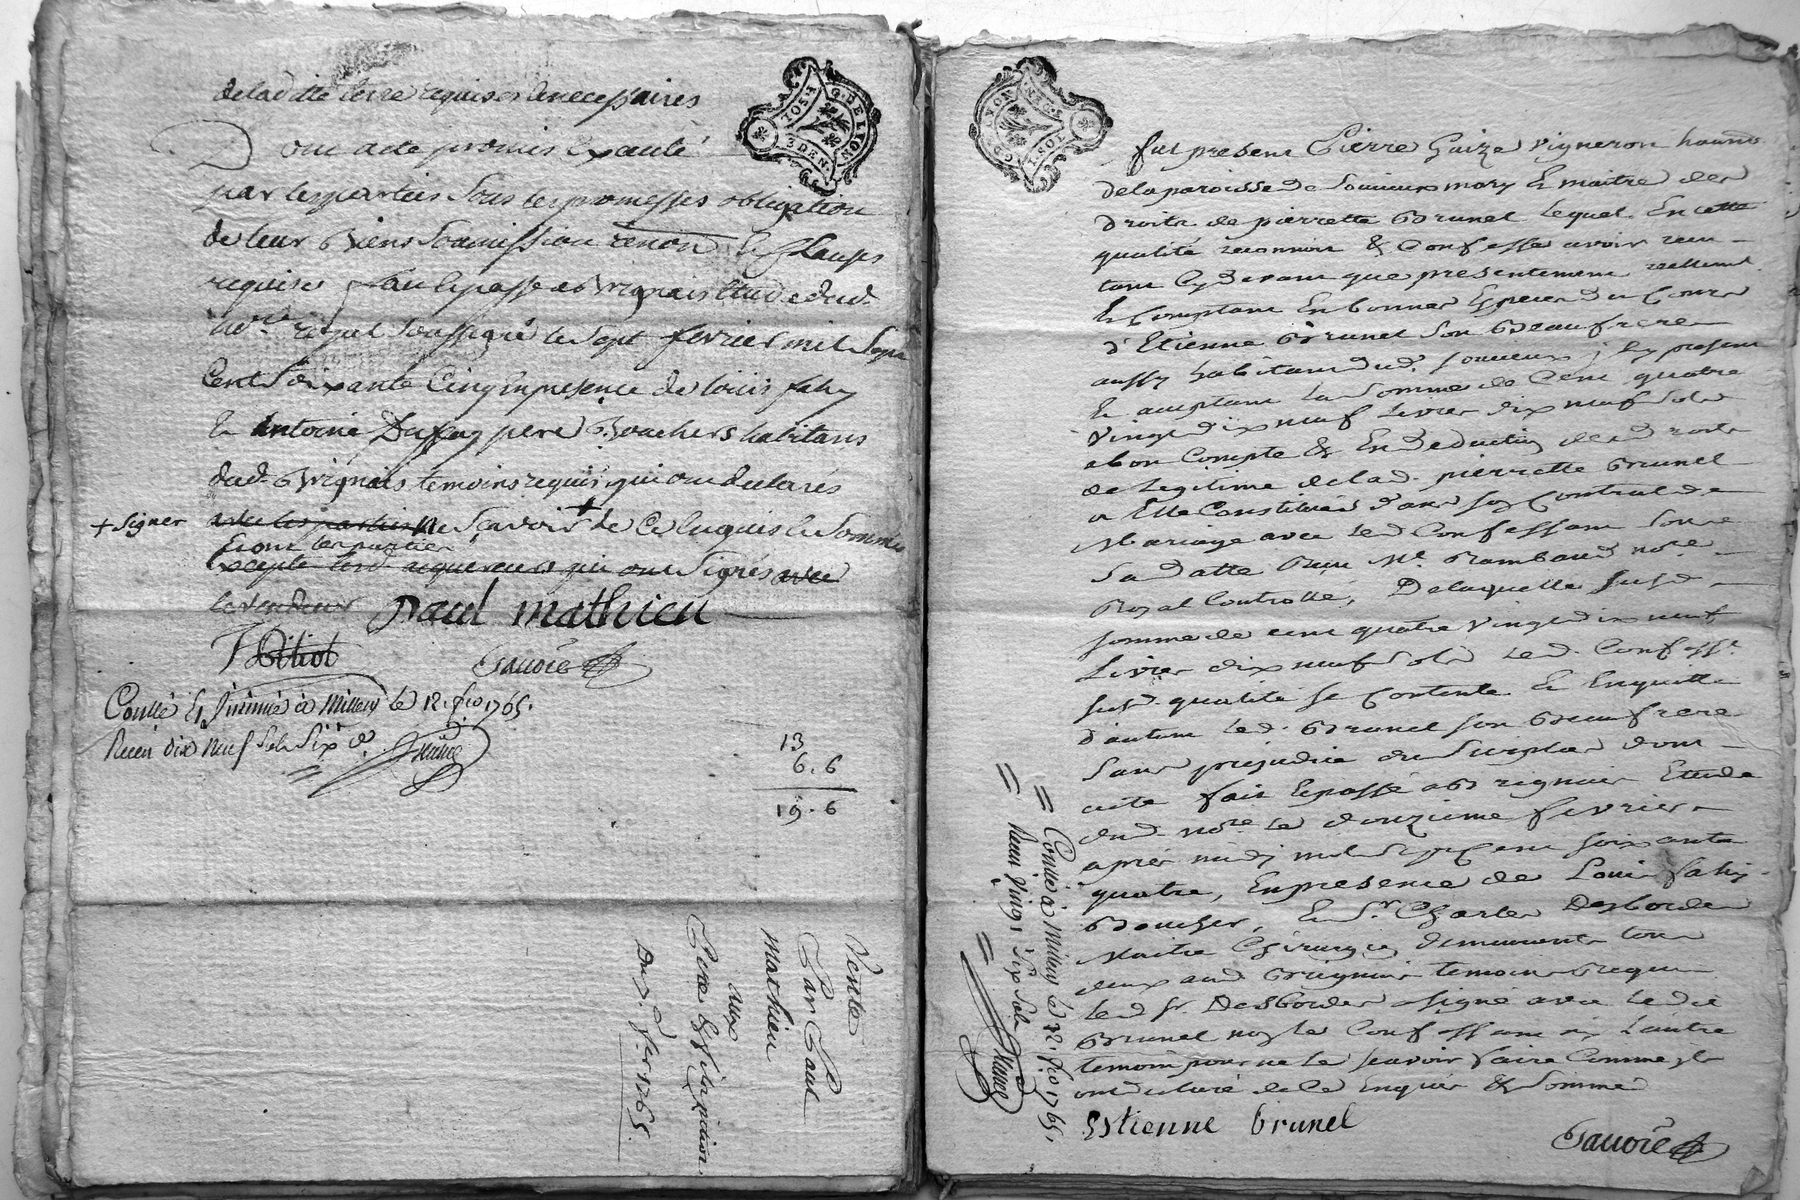 de la ditte terre requises & necessaires
Dont acte promis Exauté
par les parties sous les promesses obligation
de leur Biens soumission renon. & Clauses
requises fait & passé a Brignais Etude dud.
no.re royal soussigné le sept fevrier mil sept
Cent soixante Cinq en presence de louis fahy
& Antoine pere Bouchers habitans
dud. Brignais temoins requis qui ont declarés
+ signer
avec les parties ne scavoir + de Ce Enquis & Sommés
& ont les parties
Excepté led. qui ont signés avec
le vendeur paul mathieu
Conllé & à Millery le 12. fro 1765.
Receu dix neuf sols six d.
13
6. 6
19. 6
Vente
Par Paul
mathieu
aux
Pere &
Du 7. fer 1765.
G. DE LYON
3 DEN.
G. DE LYON
fut present Pierre Gaize vigneron habitt.
de la paroisse de Soucieux mary & maitre des
droits de pierrette Brunel lequel En cette
qualité reconnoit & Confesse avoir receu
tant Cy devant que presentement reellemt.
& Comptant En bonnes Especes du Cours
d'Etienne Brunel son Beaufrere
aussy habitant dud. soucieux jcy present
& aceptant la somme de Cent quatre
vingt dix neuf Livres dix neuf sols
a bon Compte & En deduction des droits
de Legitime de lad. pierrette Brunel
a Elle Constitués dans son Contrat de
Mariage avec led. Confessant sous
sa datte Reçu Me. Rambaud nore.
Royal Controllé, De laquelle susd.
somme de cent quatre vingt dix neuf
Livres dix neuf sols led. Confesst.
susd. qualité se Contente & En quitte
d'autant led. Brunel son Beaufrere
sans prejudice du surplus dont
acte fait & passé a Brignais Etude
dud. nore. le douzieme fevrier
après midy mil sept cent soixante
quatre, En presence de Louis fahy
Boucher, & sr. Charles Desbordes
Maitre Chirurgien demeurants tous
deux aud. Brignais temoins Requis
led. sr. Desbordes signé avec led.
Brunel non le Confessant ny L'autre
temoin pour ne le scavoir faire Comme jls
ont declaré de Ce Enquis & Sommés
Estienne brunel
= Conllé à Millery le 22. fro 1765.
= Receu vingt six sols